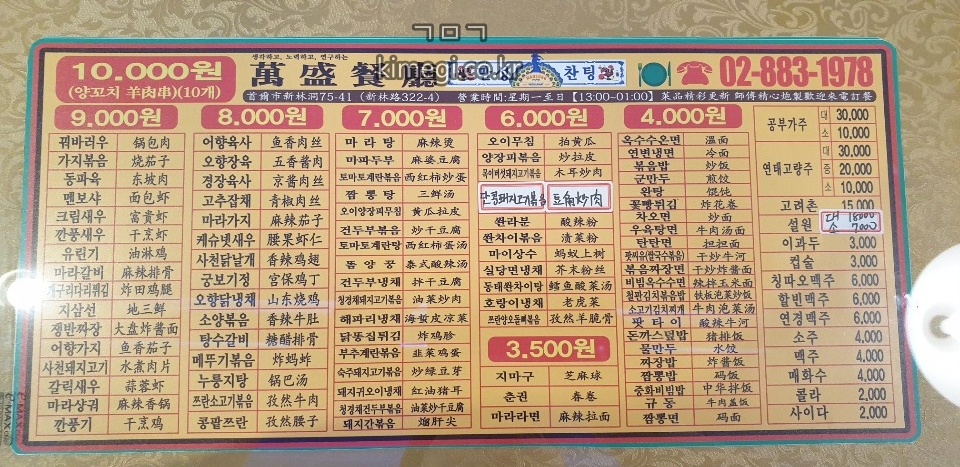 ㄱㅁㄱ
kimegi.co.kr
10.000원
(양꼬치 羊肉串)(10개)
생각하고, 노력하고, 연구하는
萬盛餐廳
찬팅
02-883-1978
首爾市新林洞75-41 (新林路322-4) 營業時間:星期一至日【13:00~01:00】菜品精彩更新 師傅精心炮製歡迎來電訂餐
9.000원
꿔바러우 锅包肉
가지볶음 烧茄子
동파육 东坡肉
멘보샤 面包虾
크림새우 富贵虾
깐풍새우 干烹虾
유린기 油淋鸡
마라갈비 麻辣排骨
개구리다리튀김 炸田鸡腿
지삼선 地三鲜
쟁반짜장 大盘炸酱面
어향가지 鱼香茄子
사천돼지고기 水煮肉片
갈릭새우 蒜蓉虾
마라샹궈 麻辣香锅
깐풍기 干烹鸡
8.000원
어향육사 鱼香肉丝
오향장육 五香酱肉
경장육사 京酱肉丝
고추잡채 青椒肉丝
마라가지 麻辣茄子
캐슈넷새우 腰果虾仁
사천닭날개 香辣鸡翅
궁보기정 宫保鸡丁
오향닭냉채 山东烧鸡
소양볶음 香辣牛肚
탕수갈비 糖醋排骨
메뚜기볶음 炸蚂蚱
누룽지탕 锅巴汤
쯔란소고기볶음 孜然牛肉
콩팥쯔란 孜然腰子
7.000원
마라탕 麻辣烫
마파두부 麻婆豆腐
토마토계란볶음 西红柿炒蛋
짬뽕탕 三鲜汤
오이양장피무침 黄瓜拉皮
건두부볶음 炒干豆腐
토마토계란탕 西红柿蛋汤
똠양꿍 泰式酸辣汤
건두부냉채 拌干豆腐
청경채돼지고기볶음 油菜炒肉
해파리냉채 海蜇皮凉菜
닭똥집튀김 炸鸡胗
부추계란볶음 韭菜鸡蛋
숙주돼지고기볶음 炒绿豆芽
돼지귀오이냉채 红油猪耳
청경채건두부볶음 油菜炒干豆腐
돼지간볶음 熘肝尖
6.000원
오이무침 拍黄瓜
양장피볶음 炒拉皮
목이버섯돼지고기볶음 木耳炒肉
豆角炒肉
쏸라분 酸辣粉
쏸차이볶음 渍菜粉
마이상수 蚂蚁上树
실당면냉채 芥末粉丝
동태쏸차이탕 鳕鱼酸菜汤
호랑이냉채 老虎菜
쯔란양오돌뼈볶음 孜然羊脆骨
3.500원
지마구 芝麻球
춘권 春卷
마라라면 麻辣拉面
4.000원
옥수수온면 温面
연변냉면 冷面
볶음밥 炒饭
군만두 煎饺
완탕 馄饨
꽃빵튀김 炸花卷
차오면 炒面
우육탕면 牛肉汤面
탄탄면 担担面
干炒牛河
볶음짜장면 干炒炸酱面
비빔옥수수면 辣拌玉米面
철판김치볶음밥 铁板泡菜炒饭
소고기김치찌개 牛肉泡菜汤
팟타이 酸辣牛河
돈까스덮밥 猪排饭
물만두 水饺
짜장밥 炸酱饭
짬뽕밥 码饭
중화비빔밥 中华拌饭
규동 牛肉盖饭
짬뽕면 码面
공부가주 대 30,000
소 10,000
연태고량주 대 30,000
중 20,000
소 10,000
고려촌 15,000
설원 대 18000
소 7000
이과두 3,000
컵술 3,000
칭따오맥주 6,000
할빈맥주 6,000
연경맥주 6,000
소주 4,000
맥주 4,000
매화수 4,000
콜라 2,000
사이다 2,000